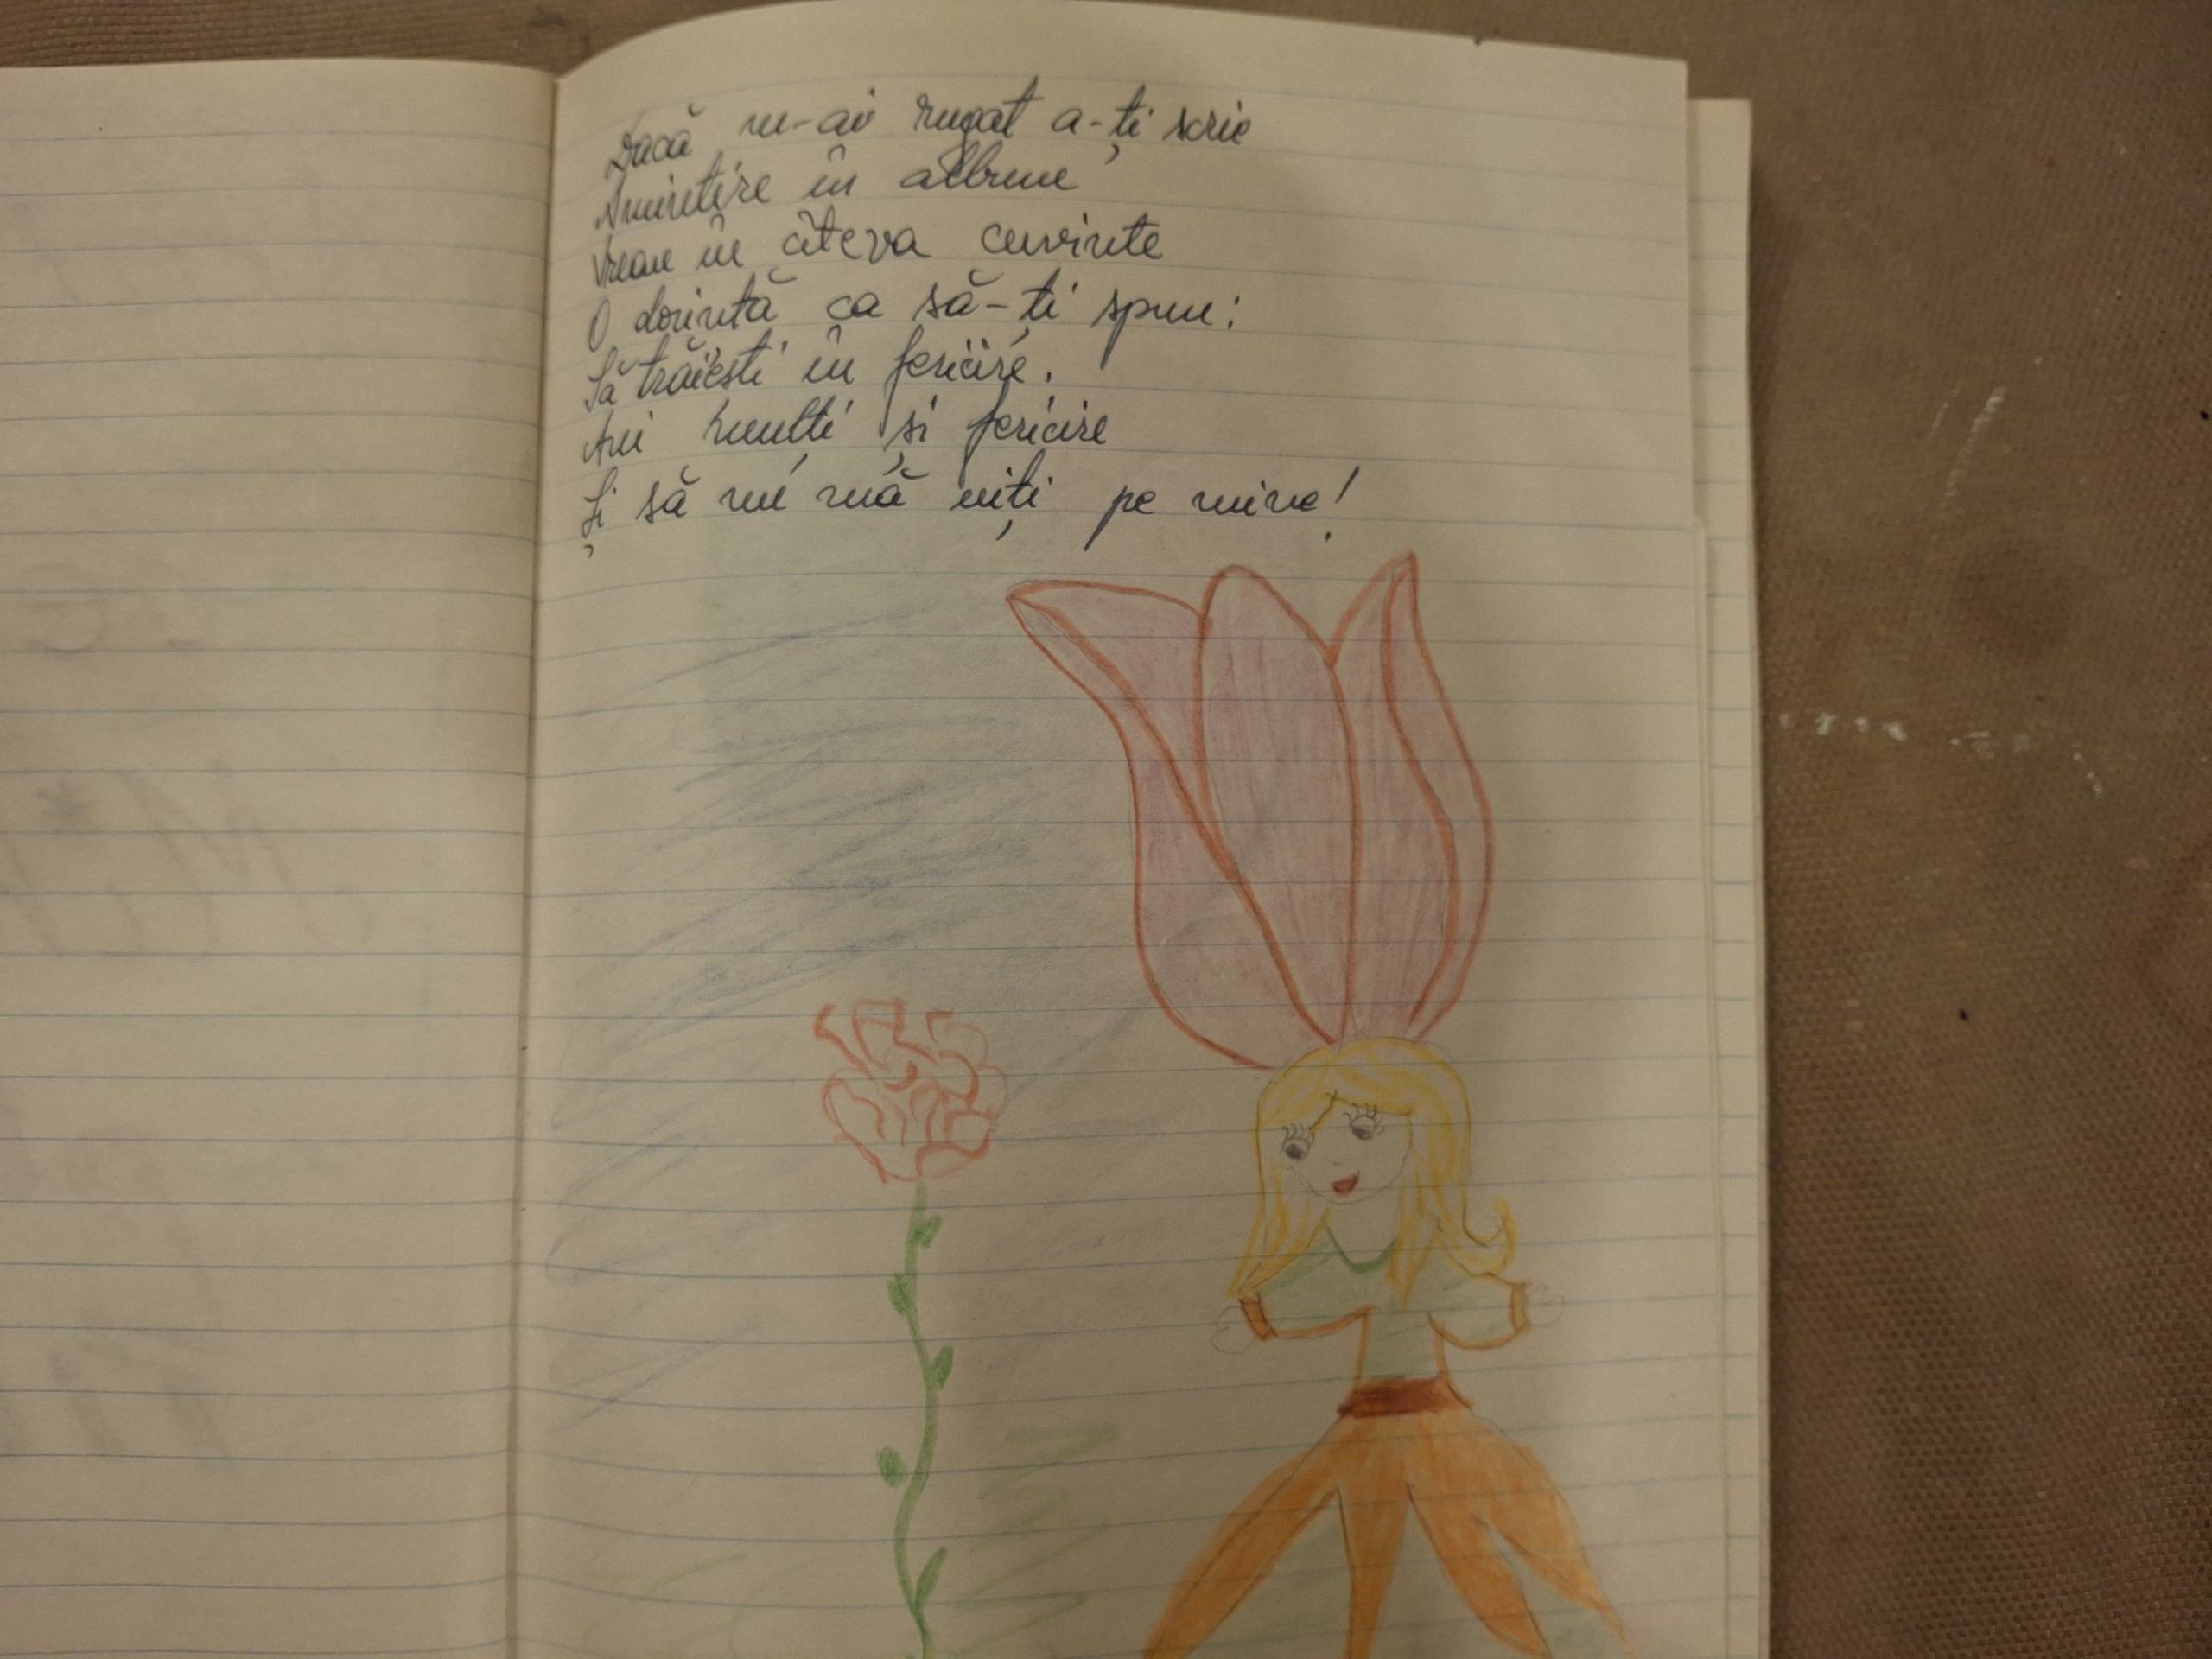 Dacă m-ai rugat a-ți scrie
Amintire în album
Vreau în câteva cuvinte
O dorință ca să-ți spun:
Să trăiești în fericire.
Ani mulți și fericire
Și să nu mă uiți pe mine!